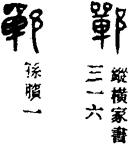 鄲
縱橫家書
三一六
鄲
孫臏一